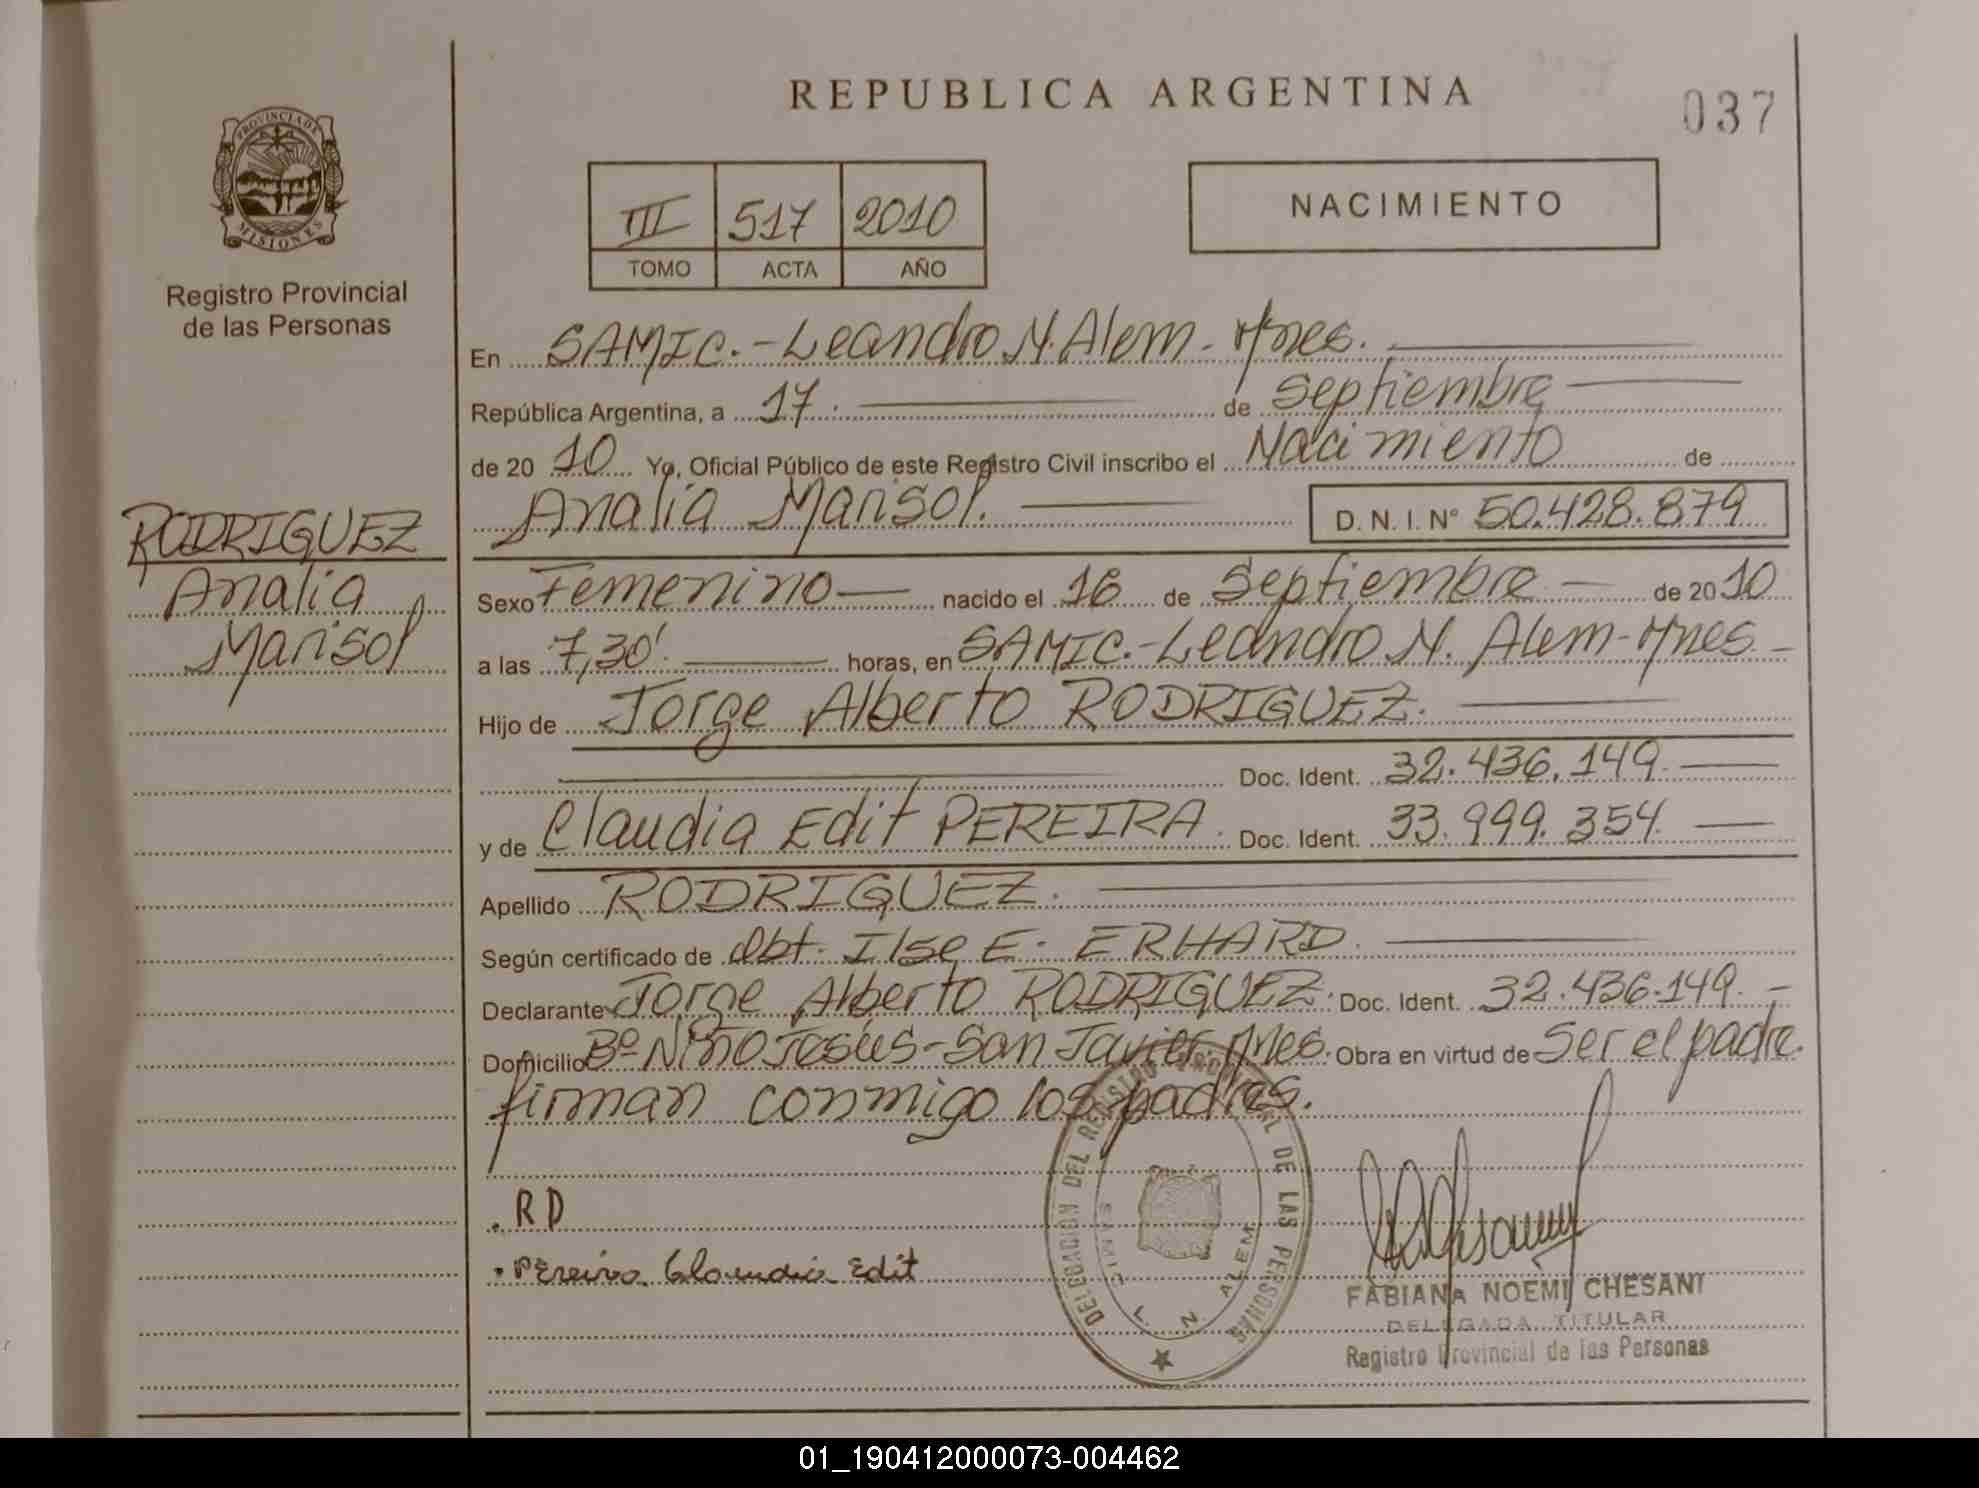 REPUBLICA ARGENTINA
037
PROVINCIA DE
MISIONES
Registro Provincial
de las Personas
III 517 2010
TOMO ACTA AÑO
NACIMIENTO
En SAMIC.-Leandro N. Alem - Mnes.
República Argentina, a 17. de Septiembre
de 2010 Yo, Oficial Público de este Registro Civil inscribo el Nacimiento de
Analia Marisol. D. N. I. N° 50.428.879
RODRIGUEZ
Analia
Marisol
Sexo Femenino nacido el 16 de Septiembre de 2010
a las 7,30' horas, en SAMIC.-Leandro N. Alem-Mnes.-
Hijo de Jorge Alberto RODRIGUEZ.
Doc. Ident. 32.436.149.
y de Claudia Edit PEREIRA. Doc. Ident. 33.999.354.
Apellido RODRIGUEZ.
Según certificado de Obt. Ilse E. ERHARD.
Declarante Jorge Alberto RODRIGUEZ. Doc. Ident. 32.436.149.-
Domicilio Bº Niño Jesús-San Javier. Mnes. Obra en virtud de Ser el padre.
firman conmigo los padres.
. RD
. Pereira Claudia Edit
DELEGACION DEL REGISTRO PROVINCIAL DE LAS PERSONAS
SAMIC L. N. ALEM
FABIANA NOEMI CHESANI
DELEGADA TITULAR
Registro Provincial de las Personas
01_190412000073-004462